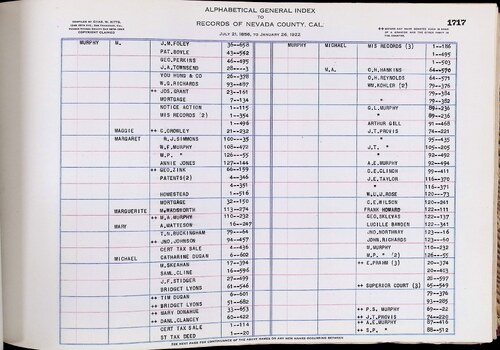 ALPHABETICAL GENERAL INDEX
TO
RECORDS OF NEVADA COUNTY, CAL.
JULY 21, 1856, TO JANUARY 26, 1922
COPYRIGHT CLAIMED
1717
MURPHY M. J.M.FOLEY 36--658 MURPHY MICHAEL MIS RECORDS (3) 1--186
PAT.BOYLE 43--562 1--495
GEO.PERKINS 46--495 1--503
J.A.TOWNSEND 28---3 M.A. O.H.HAWKINS 64--570
YOU HUNG & CO 26--378 O.H.REYNOLDS 64--571
W.G.RICHARDS 93--487 WM.KOHLER (2) 79--376
++ JOS.GRANT 23--161 79--384
MORTGAGE 7--134 " 79--382
NOTICE ACTION 1--115 G.L.MURPHY 89--236
MIS RECORDS (2) 1--354 " 89--236
1--496 ARTHUR GILL 91--468
MAGGIE ++ C.CROWLEY 21--232 J.T.PROVIS 74--221
MARGARET R.J.SIMMONS 100---35 " 95--435
W.F.MURPHY 108--472 J.T. " 105--205
W.P. " 126---55 " 92--492
ANNIE JONES 127--144 A.E.MURPHY 92--494
++ GEO.ZINK 66--159 C.E.CLINCH 99--411
PATENTS(2) 4--346 J.E.TAYLOR 116--370
4--351 " 116--371
HOMESTEAD 1--516 M.U.U.ROSE 120---73
MORTGAGE 32--150 C.E.WILSON 120--241
MARGUERITE M.WADSWORTH 113--274 FRANK HOWARD 122--111
++ M.A.MURPHY 110--232 GEO.SKLEVAS 122--137
MARY A.MATTESON 16--247 LUCILLE BARDEN 122--141
T.N.BUCKINGHAM 79--64 JNO.NORTHWAY 123---16
++ JNO.JOHNSON 94--457 JOHN.RICHARDS 123---50
CERT TAX SALE 4--436 M.MURPHY 110--232
MICHAEL CATHARINE DUGAN 6--602 W.P. " (2) 126---55
M.SKEAHAN 17--394 ++ E.PRAHM (3) 20--374
SAML.CLINE 16--596 20--403
J.F.STIDGER 27--499 26--597
BRIDGET LYONS 61--546 ++ SUPERIOR COURT (3) 65--549
++ TIM DUGAN 6--601 79--374
++ BRIDGET LYONS 51--682 93--205
++ MARY DONAHUE 33--953 ++ P.S. MURPHY 69---22
++ DANL.CLANCEY 60--482 ++ J.T.PROVIS 74--220
CERT TAX SALE 1--116 ++ A.E.MURPHY 87--416
ST TAX DEED 1---20 ++ S.P. " 88--512